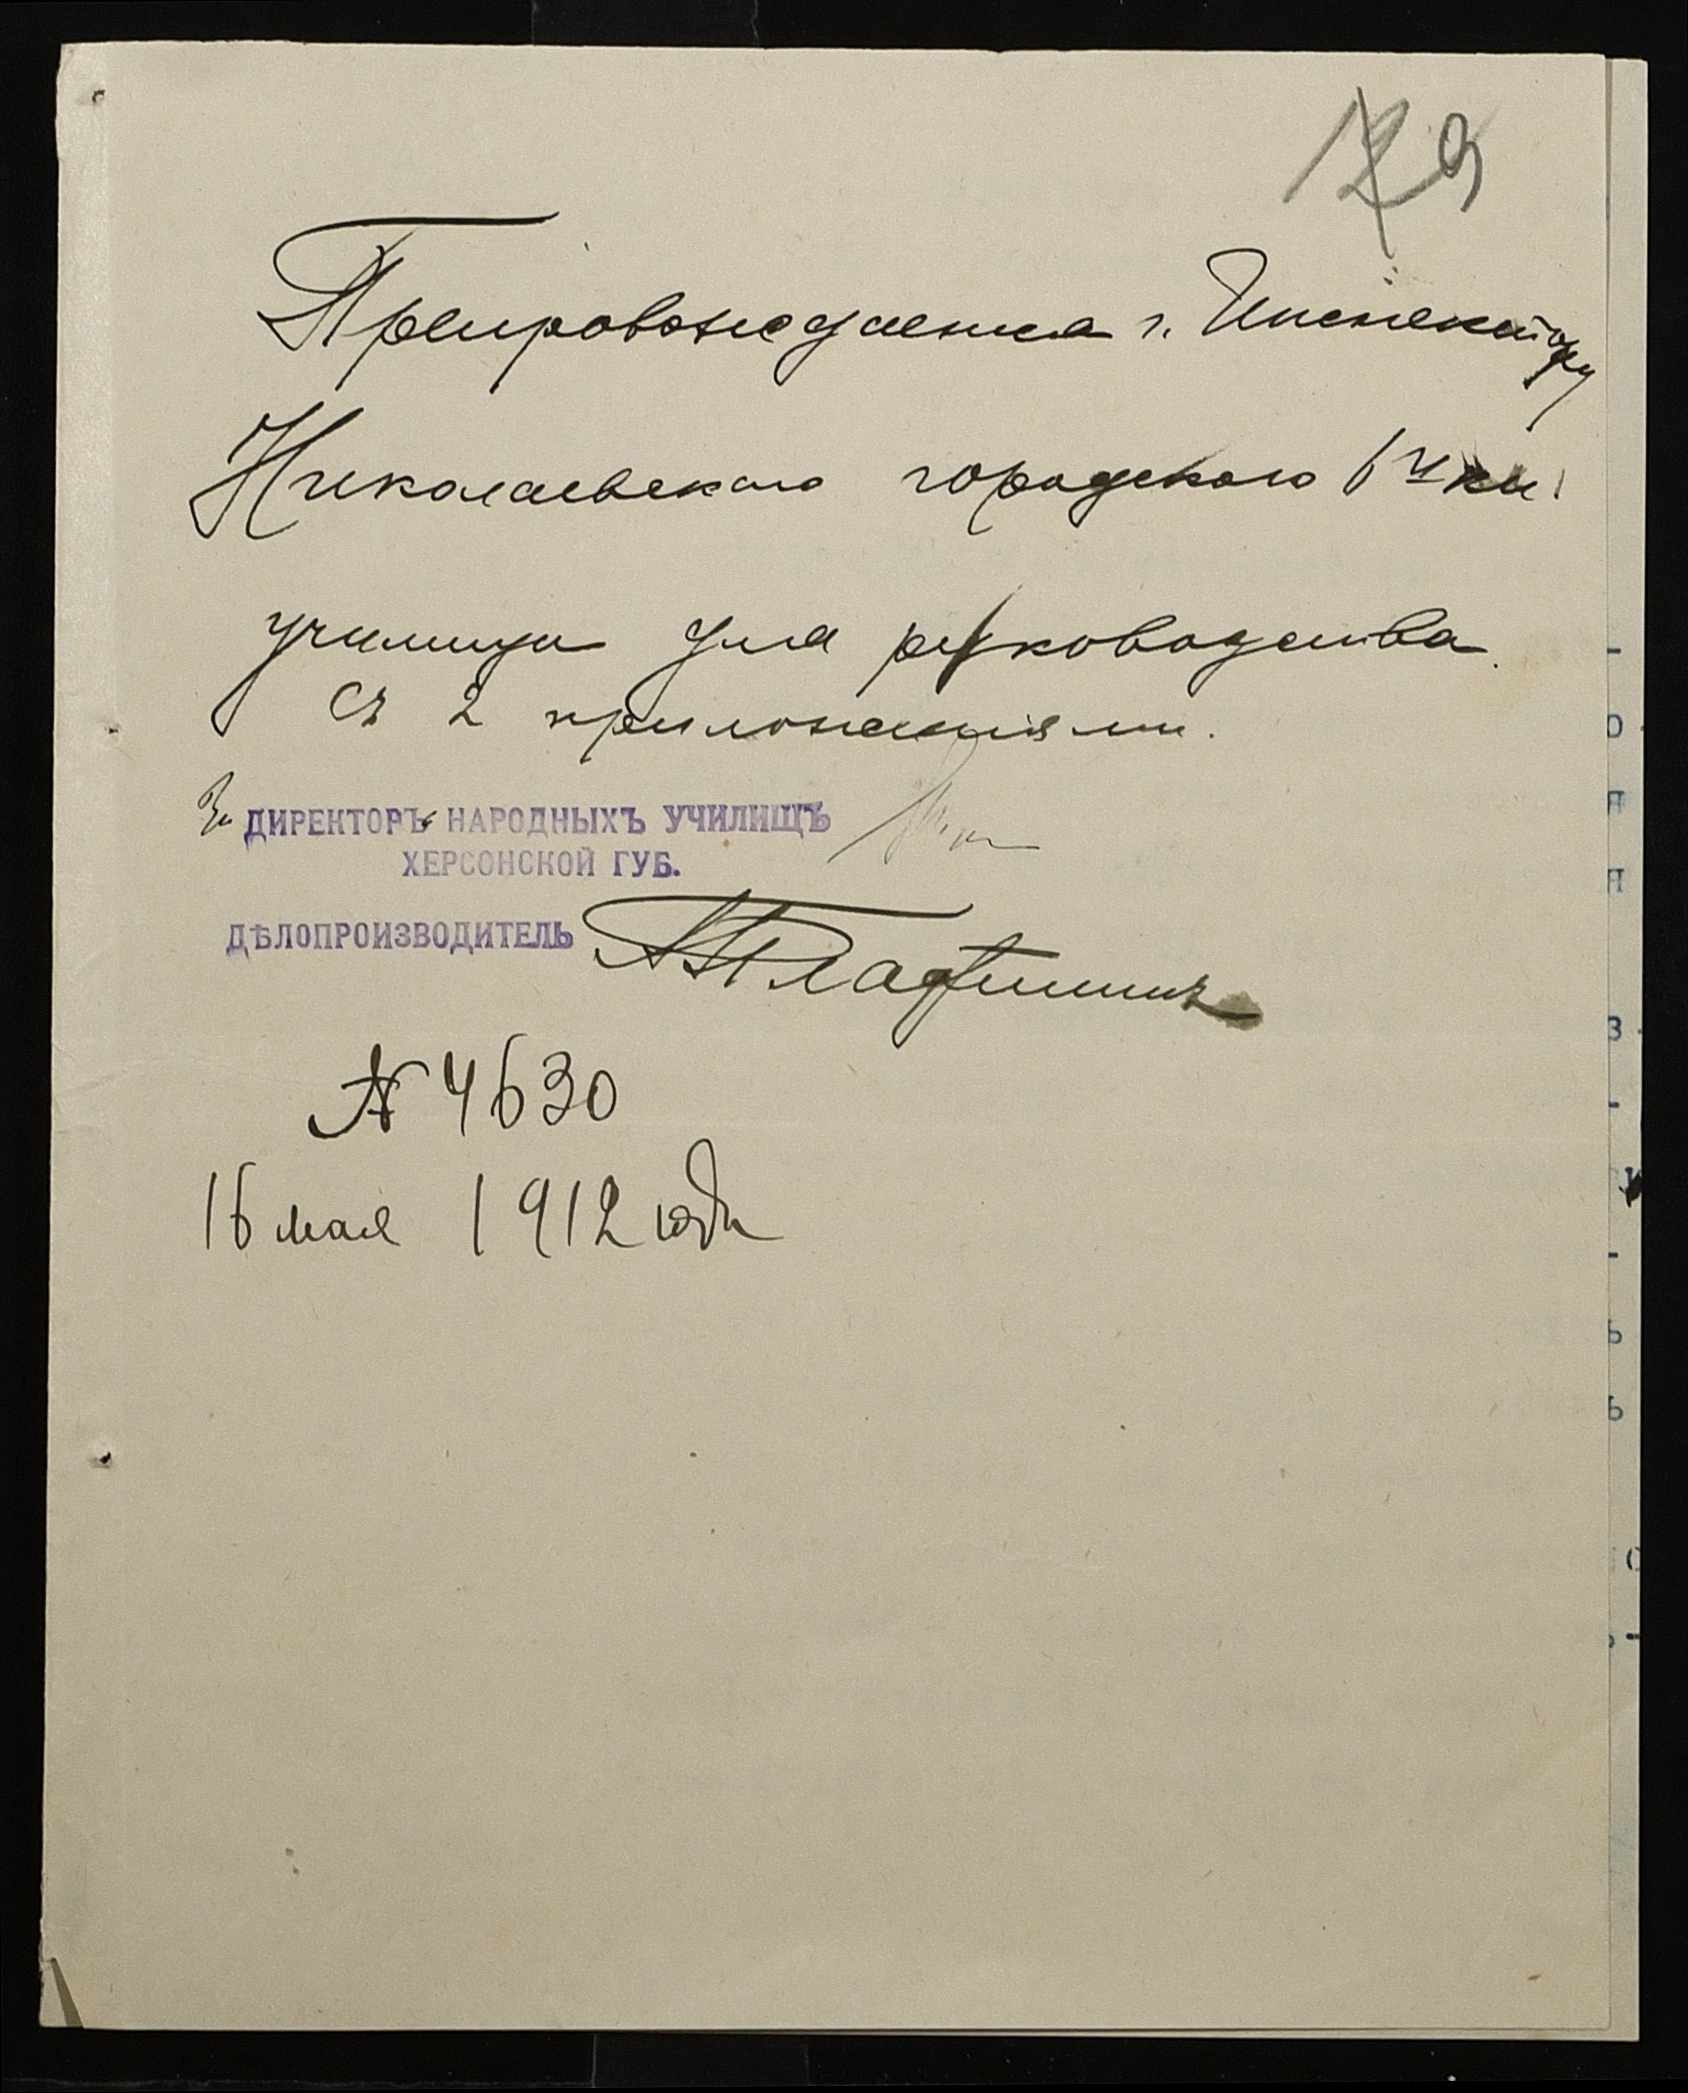 79
Препровождается г. Инспектору
Николаевскаго городского 6 ч кл.
училища для руководства.
Съ 2 приложеніями.
За ДИРЕКТОРЪа НАРОДНЫХЪ УЧИЛИЩЪ
ХЕРСОНСКОЙ ГУБ.
ДѢЛОПРОИЗВОДИТЕЛЬ
№ 4630
16 мая 1912 года